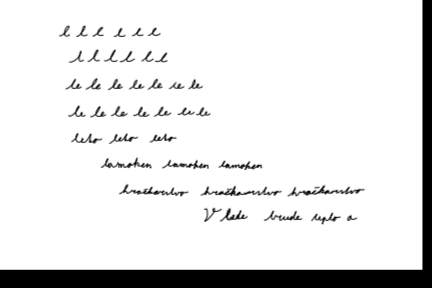 l l l l l l
l l l l l l
le le le le le le le
le le le le le le le
leto leto leto
lamoken lamoken lamoken
hračkarstvo hračkarstvo hračkarstvo
V lete bude teplo a